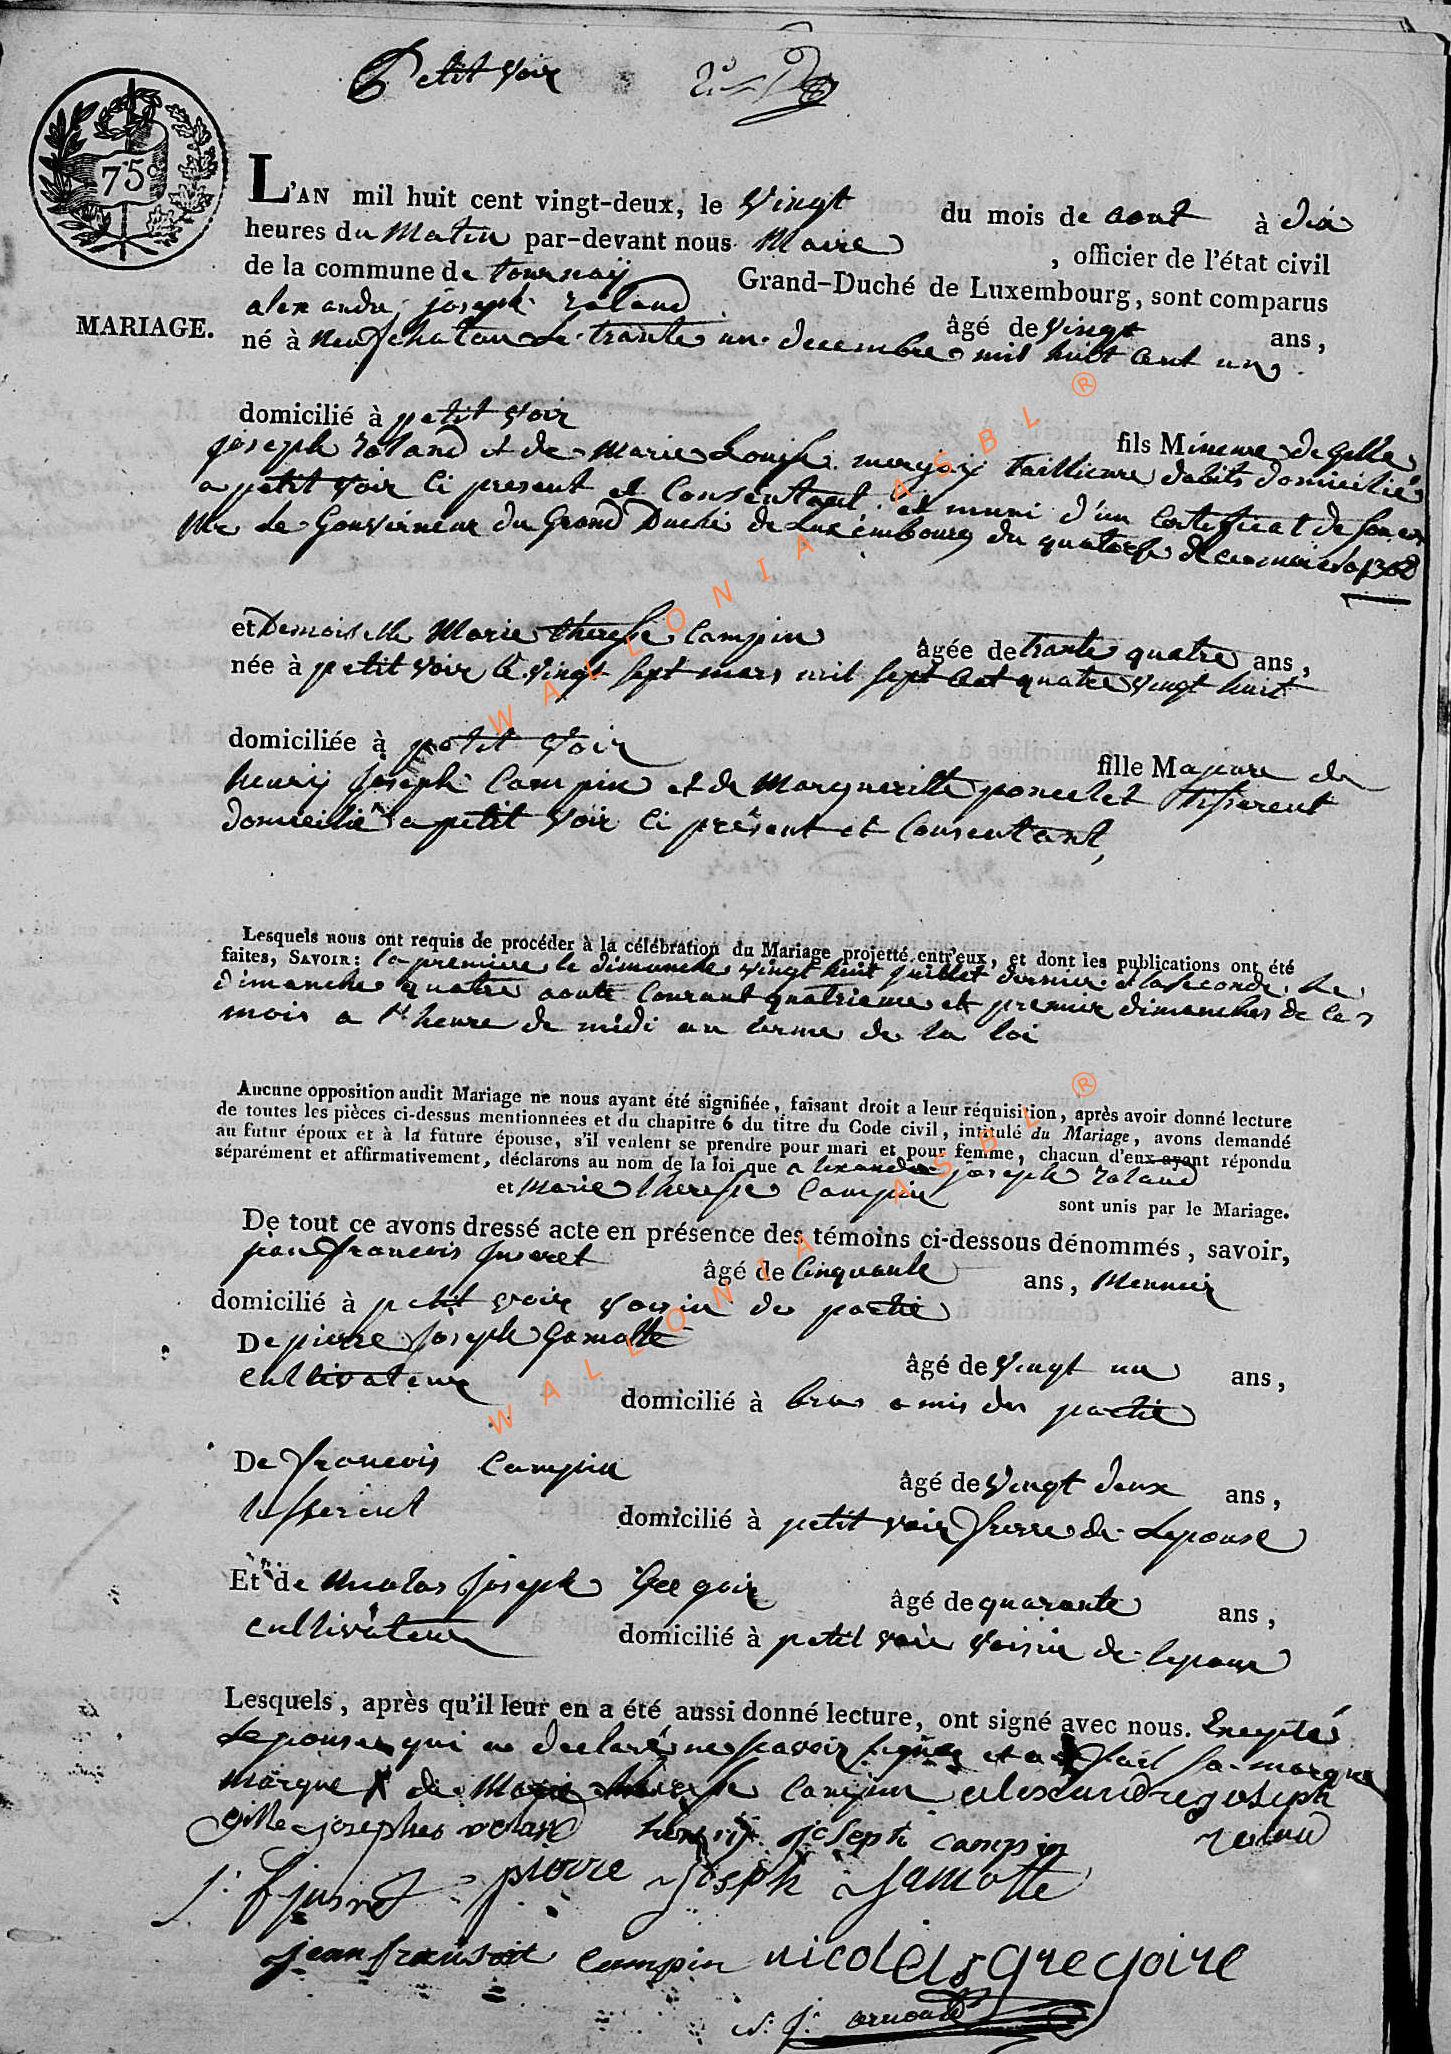 Petit voir
75c
L'AN mil huit cent vingt-deux, le vingt du mois de aout à dix
heures du Matin par-devant nous Maire, officier de l'état civil
de la commune de tournay Grand-Duché de Luxembourg, sont comparus
MARIAGE.
alexandre joseph roland âgé de vingt ans,
né à neufchatau le trante un decembre mil huit cent un
domicilié à petit voir fils Mineure de gille
joseph roland et de marie Louise taillieure dabits domicilié
a petit voir ci present et consentant et muni d'un certificat de
Mr le Gouverneur du Grand Duché de Luxembourg du quatorse
et Demoiselle Marie theresse Campin âgée de trante quatre ans,
née à petit voir le vingt sept mars mil sept cent quatre vingt huit
domiciliée à petit voir fille Majeure de
henrij joseph Campin et de Margueritte poncelet tisserent
domicilié a petit voir ci présent et consentant,
Lesquels nous ont requis de procéder à la célébration du Mariage projetté entr'eux, et dont les publications ont été
faites, SAVOIR: la premiere le dimanche vingt huit juillet dernier et la seconde le
dimanche quatre aoute courant quatrieme et premier dimanches de ces
mois a l'heure de midi au terme de la loi
Aucune opposition audit Mariage ne nous ayant été signifiée, faisant droit a leur réquisition, après avoir donné lecture
de toutes les pièces ci-dessus mentionnées et du chapitre 6 du titre du Code civil, intitulé du Mariage, avons demandé
au futur époux et à la future épouse, s'il veulent se prendre pour mari et pour femme, chacun d'eux ayant répondu
séparément et affirmativement, déclarons au nom de la loi que alexandre joseph roland
et Marie therese Campin sont unis par le Mariage.
De tout ce avons dressé acte en présence des témoins ci-dessous dénommés, savoir,
jean francois jusret âgé de cinquante ans, Meunier
domicilié à petit voir voisin des partie
De pierre joseph Gamotte âgé de vingt un ans,
cultivateur domicilié à bras amis des partie
De francois Campin âgé de vingt deux ans,
tisserent domicilié à petit voir frere de Lepouse
Et de nicolas joseph Gregoir âgé de quarante ans,
cultivateur domicilié à petit voir voisin de lepouse
Lesquels, après qu'il leur en a été aussi donné lecture, ont signé avec nous. Excepté
Lepouse qui a declaré ne scavoir signer et a fait sa marque
marque X de Marie therese Campin alexandre joseph
gille josephe rolan henrij joseph campin roland
j. f jusret pierre joseph jamotte
jean fransoit campin nicolas gregoire
WALLONIA ASBL ®
WALLONIA ASBL ®